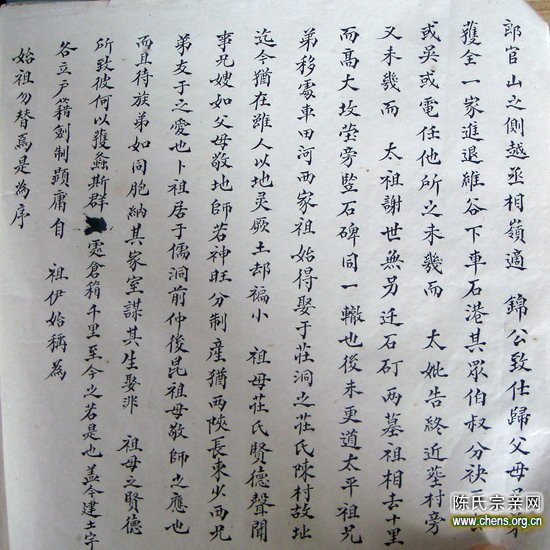 郎官山之側越丞相嶺適 錦公致仕歸父母
獲全一家進退維谷下車石港其眾伯叔分袂
或吳或電任他所之未幾而 太妣告終近塋村旁
又未幾而 太祖謝世無另迁石矴两墓祖相去十里
而髙大坟塋旁竪石碑同一轍也後未更遒太平祖兄
弟移處車田河西家祖始得娶于莊洞之莊氏陳村故址
迄今猶在雖人以地灵厥土却褊小 祖母莊氏賢德聲聞
事兄嫂如父母敬地師若神旺分制產猶两陝長東少西兄
弟友于之愛也卜祖居于儒洞前仲後昆祖母敬師之應也
而且待族弟如同胞納其家室謀其生娶非 祖母之賢德
所致彼何以獲螽斯群 處倉箱千里至今之若是也盖今建土宇
各立戶籍創制顕庸自 祖伊始稱為
始祖勿替焉是為序
陈氏宗亲网
www.chens.org.cn